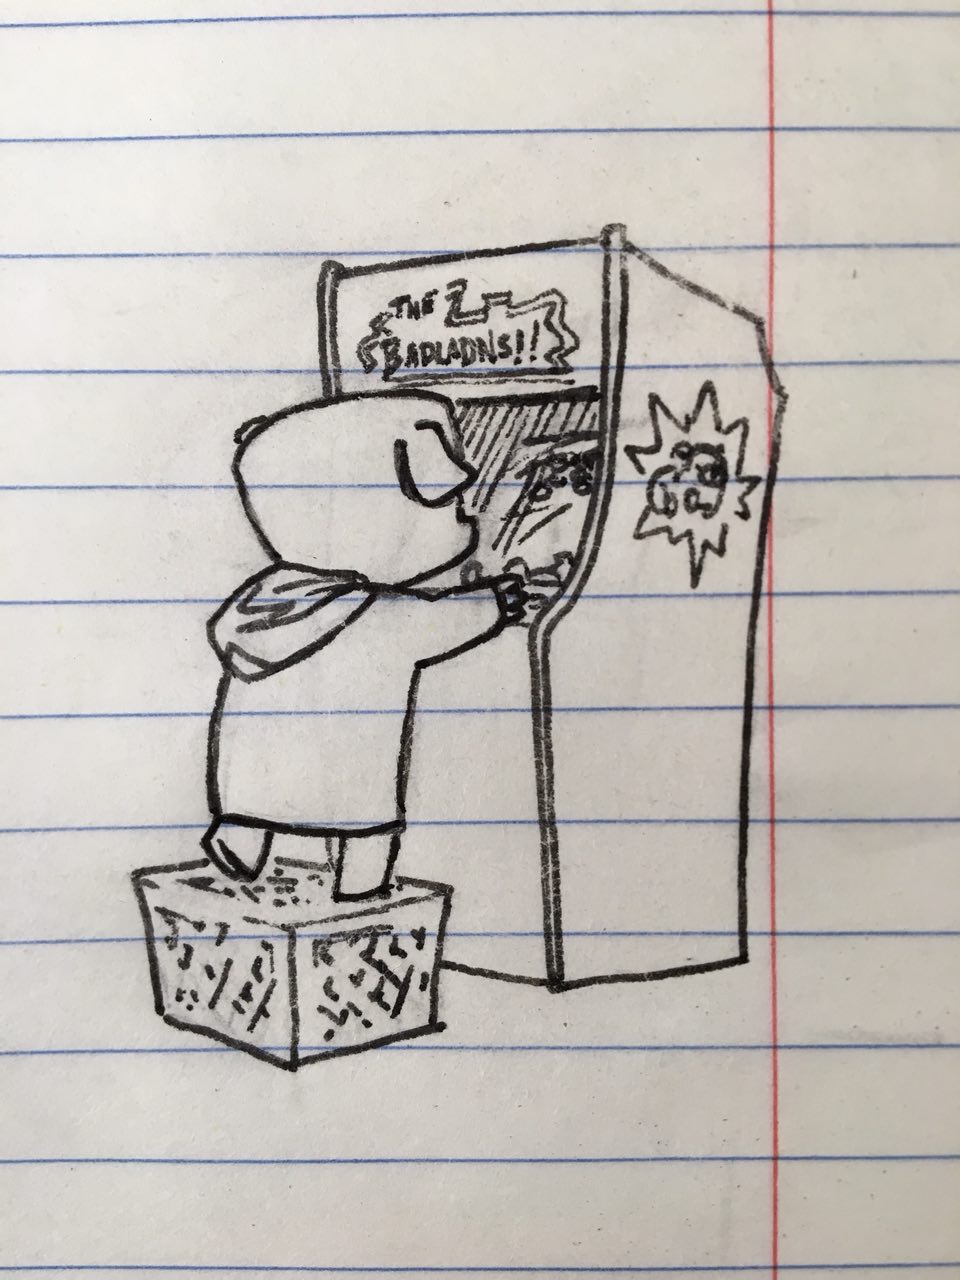 THE
BADLADNS!!